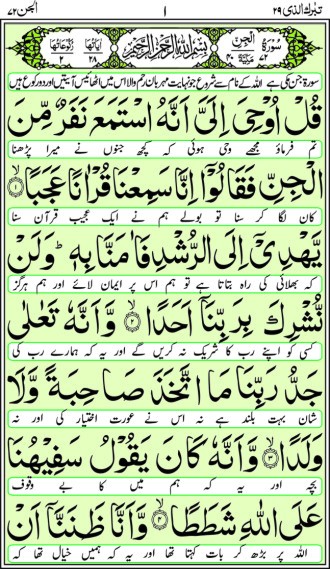 تبٰرك الذى ٢٩ ١ الجن ٧٢
سُوْرَةُ ٧٢ الْجِنِّ مَكِّيَّةٌ ٤٠ بِسْمِ اللّٰهِ الرَّحْمٰنِ الرَّحِيْمِ اٰيَاتُهَا ٢٨ رُكُوْعَاتُهَا ٢
سورۃ جن مکی ہے اللہ کے نام سے شروع جو نہایت مہربان رحم والا اس میں اٹھائیس آیتیں اور دو رکوع ہیں
قُلْ اُوْحِیَ اِلَیَّ اَنَّهُ اسْتَمَعَ نَفَرٌ مِّنَ
تم فرماؤ مجھے وحی ہوئی کہ کچھ جنوں نے میرا پڑھنا
الْجِنِّ فَقَالُوْۤا اِنَّا سَمِعْنَا قُرْاٰنًا عَجَبًا ۝١
کان لگا کر سنا تو بولے ہم نے ایک عجیب قرآن سنا
یَّهْدِیْۤ اِلَى الرُّشْدِ فَاٰمَنَّا بِهٖ ؕ وَلَنْ
کہ بھلائی کی راہ بتاتا ہے تو ہم اس پر ایمان لائے اور ہم ہرگز
نُّشْرِكَ بِرَبِّنَاۤ اَحَدًا ۝٢ وَّاَنَّهٗ تَعٰلٰى
کسی کو اپنے رب کا شریک نہ کریں گے اور یہ کہ ہمارے رب کی
جَدُّ رَبِّنَا مَا اتَّخَذَ صَاحِبَةً وَّلَا
شان بہت بلند ہے نہ اس نے عورت اختیار کی اور نہ
وَلَدًا ۝٣ وَّاَنَّهٗ كَانَ یَقُوْلُ سَفِیْهُنَا
بچہ اور یہ کہ ہم میں کا بے وقوف
عَلَى اللّٰهِ شَطَطًا ۝٤ وَّاَنَّا ظَنَنَّاۤ اَنْ
اللہ پر بڑھ کر بات کہتا تھا اور یہ کہ ہمیں خیال تھا کہ